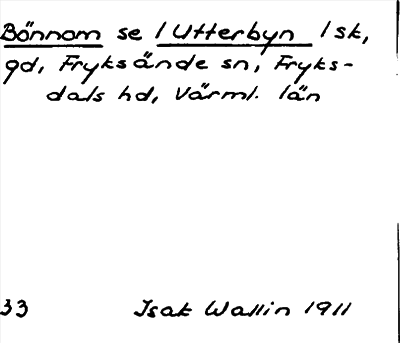 Bönnom se 1 Utterbyn 1 sk,
gd, Fryksände sn, Fryks-
dals hd, Värml. län
33 Isak Wallin 1911